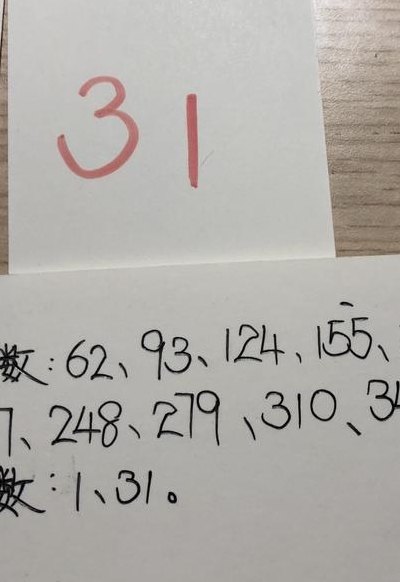 31
数:62、93、124、155、
7、248、279、310、34
数:1、31。